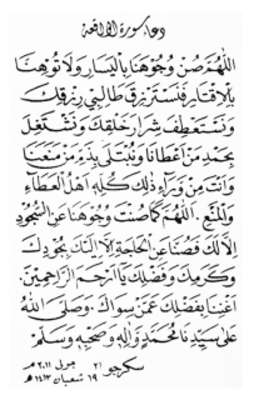 دعاء سورة الواقعة
اللهم صن وجوهنا باليسار ولا توهنا
بالإقتار فنسترزق طالبي رزقك
ونستعطف شرار خلقك ونشتغل
بحمد من أعطانا ونبتلى بذم من منعنا
وأنت من وراء ذلك كله أهل العطاء
والمنع . اللهم كما صنت وجوهنا عن السجود
إلا لك فصنا عن الحاجة إلا إليك بجودك
وكرمك وفضلك يا أرحم الراحمين .
أغننا بفضلك عمن سواك . وصلى الله
على سيدنا محمد وآله وصحبه وسلم
٢١ جولي ٢٠١١م
١٩ شعبان ١٤١٣ه